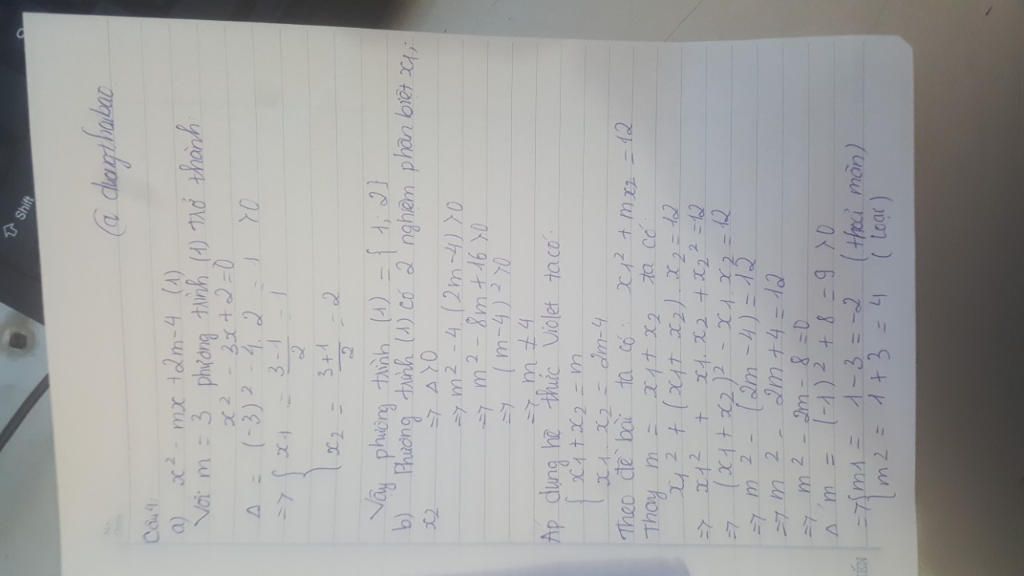 Shift
@ dangthaibao
Câu 1:
a) x² - mx + 2m - 4 (1)
Với m = 3 phương trình (1) trở thành:
x² - 3x + 2 = 0
Δ = (-3)² - 4.2 = 1 > 0
=> { x1 = 3-1/2 = 1
x2 = 3+1/2 = 2
Vậy phương trình (1) = { 1; 2}
b) Phương trình (1) có 2 nghiệm phân biệt x1;
x2 => Δ > 0
=> m² - 4 (2m-4) > 0
=> m² - 8m + 16 > 0
=> (m-4)² > 0
=> m ≠ 4
Áp dụng hệ thức Violet ta có:
{ x1 + x2 = m
x1 . x2 = 2m-4
Theo đề bài ta có: x1² + mx2 = 12
Thay m = x1 + x2 ta có
x1² + (x1 + x2) . x2 = 12
=> x1² + x1.x2 + x2² = 12
=> (x1 + x2)² - x1.x2 = 12
=> m² - (2m-4) = 12
=> m² - 2m + 4 = 12
=> m² - 2m - 8 = 0
Δ'm = (-1)² + 8 = 9 > 0
=> { m1 = 1 - 3 = -2 (thoải mãn)
m2 = 1 + 3 = 4 (loại)